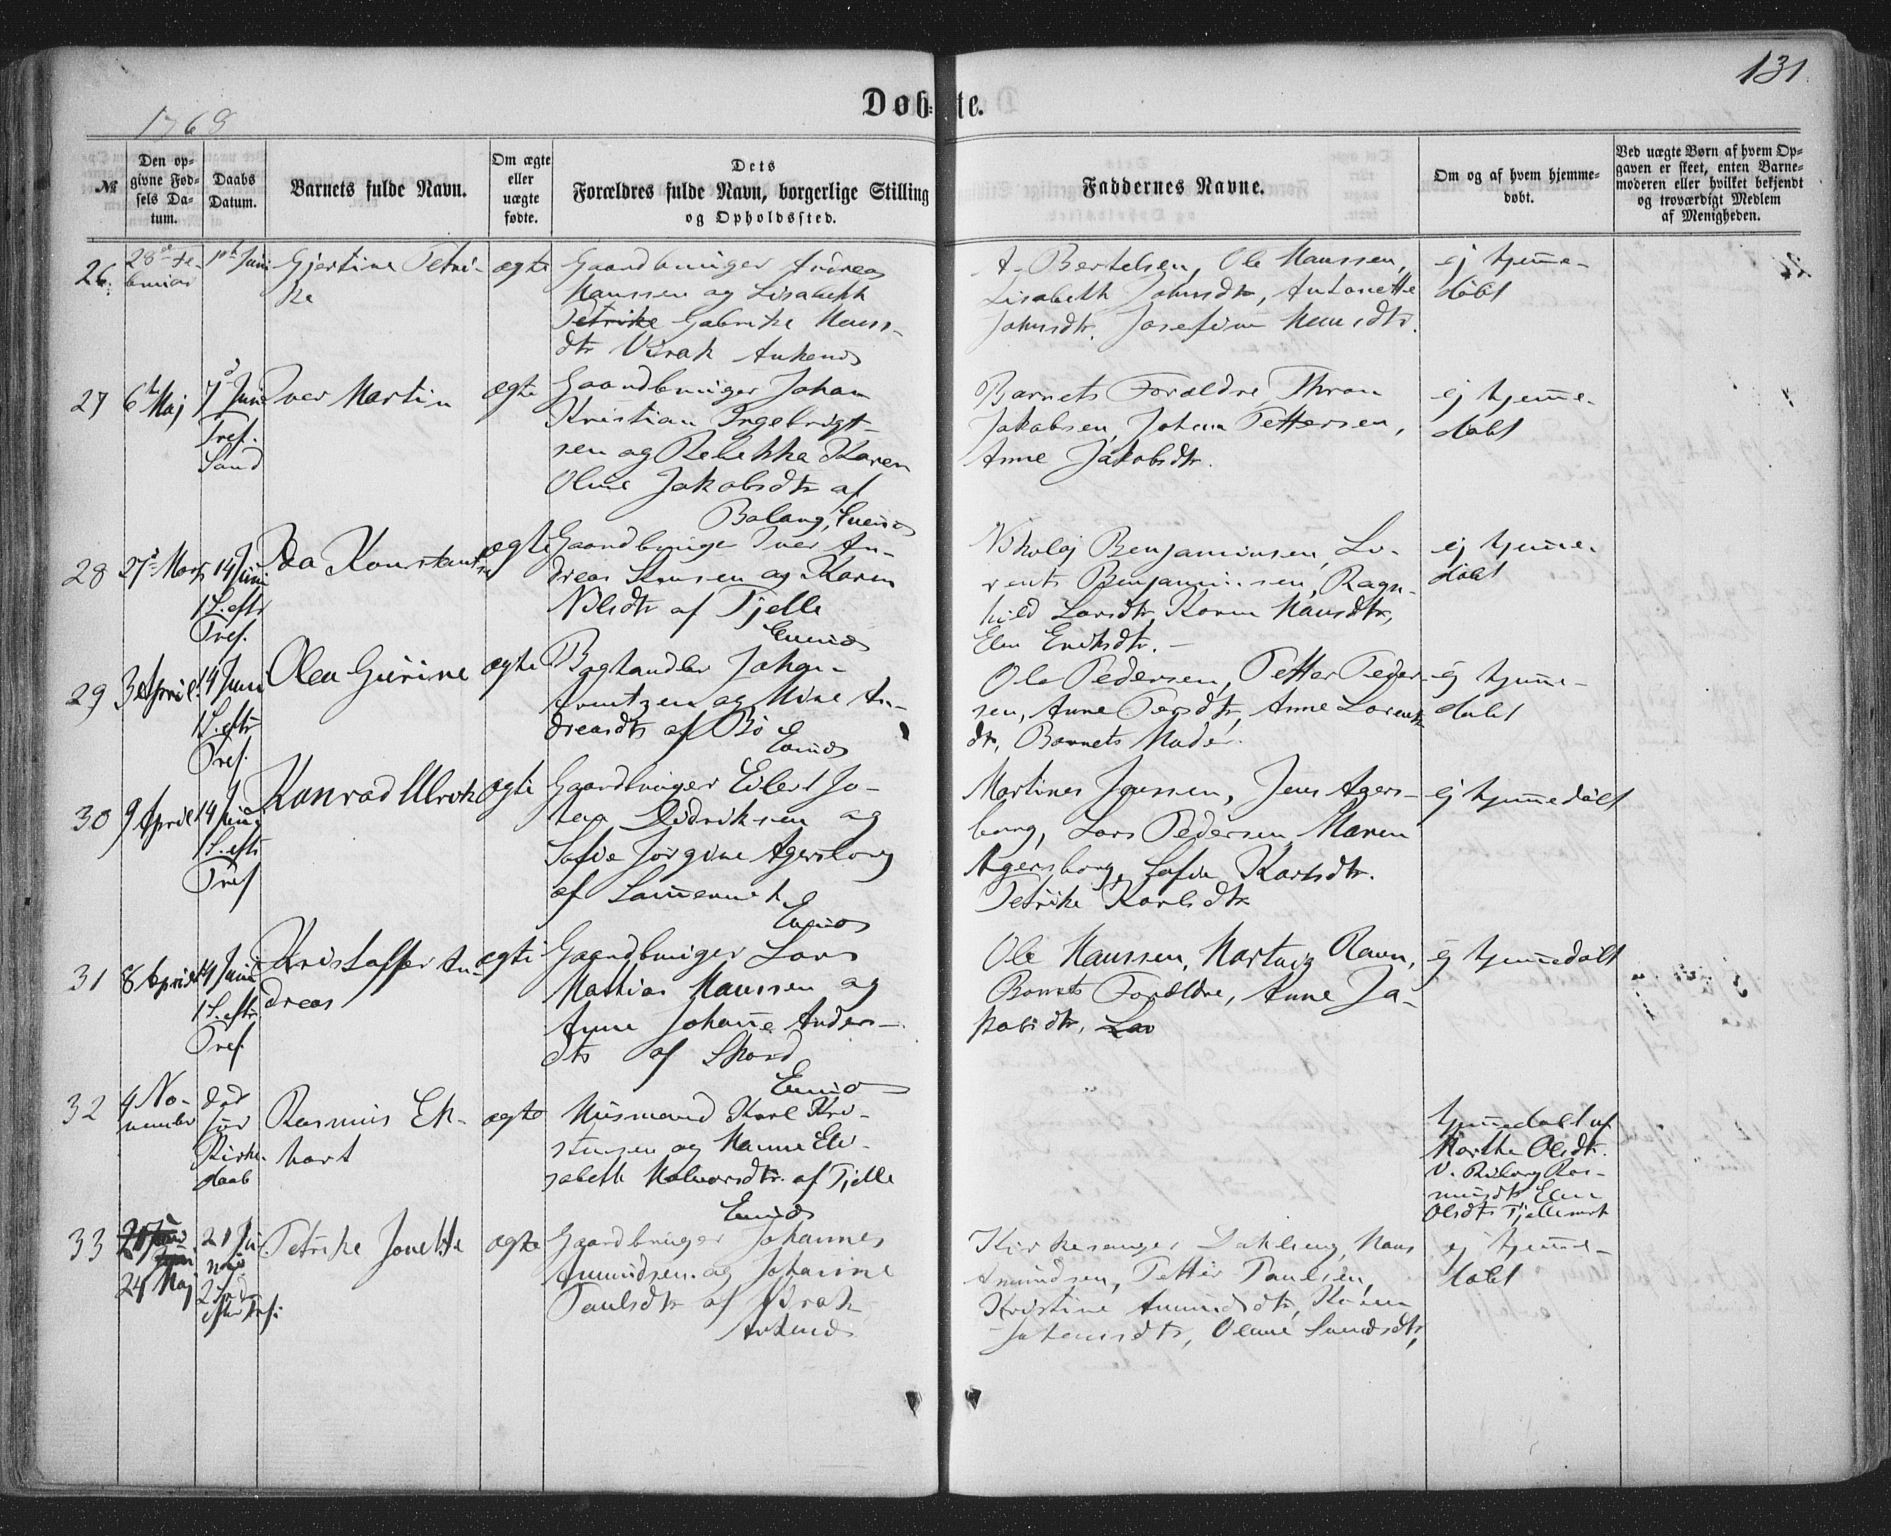 131.
Døbte.
1768
№
Den opgivne Fødsels Datum.
Daabs Datum.
Barnets fulde Navn.
Om ægte eller uægte fødte.
Dets Forældres fulde Navn, borgerlige Stilling og Opholdssted.
Faddernes Navne.
Om og af hvem hjemmedøbt.
Ved uægte Børn af hvem Opgaven er skeet, enten Barnemoderen eller hvilket bekjendt og troværdigt Medlem af Menigheden.
26.
28de Februar
1ste Juni
Gjertine Petrike
ægte
Gaardbruger Andreas
Hanssen og Lisabeth
Petrike Gabrike Hansdtr
Virak Ankenes
A. Bertelsen, Ole Hanssen,
Lisabeth Johnsdtr, Antonette
Johnsdtr. Josefine Hansdtr.
ej hjemmedøbt
27
6te Maj
7de Juni
Tref.
Sønd
Iver Martin
ægte
Gaardbruger Johan
Kristian Ingebrigtsen og Rebekka Karen
Oline Jakobsdtr af
Balang, Evenes
Barnets Forældre, Thron
Jakobsen, Johan Pettersen,
Anne Jakobsdtr.
ej hjemmedøbt
28
27de Marts
14 Juni
1 S. eftr
Tref.
Ida Konstantse
ægte
Gaardbruger Iver Andreas Hansen og Karen
Nilsdtr af Tjelle
Evenes
Nikolaj Benjaminsen, Lorents Benjaminsen, Ragnhild Larsdtr, Karen Hansdtr,
Elen Eriksdtr.
ej hjemmedøbt
29
3 April
14 Juni
1 S. eftr
Tref.
Olea Gurine
ægte
Bøghandler Johan
Arentzen og Mine Andreasdtr af Bø
Evenes
Ole Pedersen, Petter Pedersen, Anne Persdtr, Anne Lorentsdtr, Barnets Moder.
ej hjemmedøbt
30
9 April
14 Juni
1 S. eftr
Tref
Konrad Ulrik
ægte
Gaardbruger Eilert Johan Didriksen og
Sofie Jørgine Agersborg
af
Evenes
Martines Jenssen, Jens Agersborg, Lars Pedersen, Maren
Agersborg, Sofie Karlsdtr.
Petrike Karlsdtr
ej hjemmedøbt
31
8 April
14 Juni
1 S. eftr
Tref.
Kristoffer Andreas
ægte
Gaardbruger Lars
Mathias Hanssen og
Anne Johanne Andersdtr af
Evenes
Ole Hanssen, Hartvig Ravn,
Barnets Forældre, Anne Jakobsdtr, Lar
ej hjemmedøbt
32
4 November
død
før
Kirkedaab
Rasmus Ekhart
ægte
Husmand Karl Kristensen og Hanna Elisabeth Halvorsdtr. af Tjelle
Evenes
hjemmedøbt af
Marthe Olsdtr.
V. Riborg Rasmusdtr, Elen
Olsdtr
33
24 Maj
21 Juni
2 Sønd
efter Tref.
Petrike Jonette
ægte
Gaardbruger Johannes
Amundsen og Johanne
Paulsdtr af Virak
Ankenes
Kirkesanger Dahlseng, Hans
Amundsen, Petter Paulsen,
Kristine Amundsdtr, Karen
Johansdtr, Oline Svendsdtr,
ej hjemmedøbt